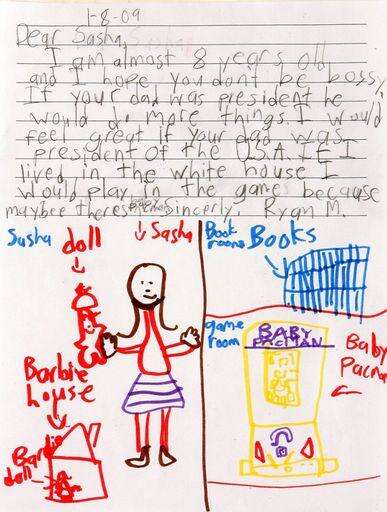 1-8-09
Dear Sasha,
I am almost 8 years old
and I hope you dont be bossy.
If your dad was president he
would do more things. I would
feel great if your dad was
president of the U.S.A. If I
lived in the white house I
would play in the game because
maybee theres Sincerly, Ryan M.
Sasha doll
Sasha
Book room Books
game room
BABY
PACMAN
Baby
Pacman
Barbie
house
Barbie
doll